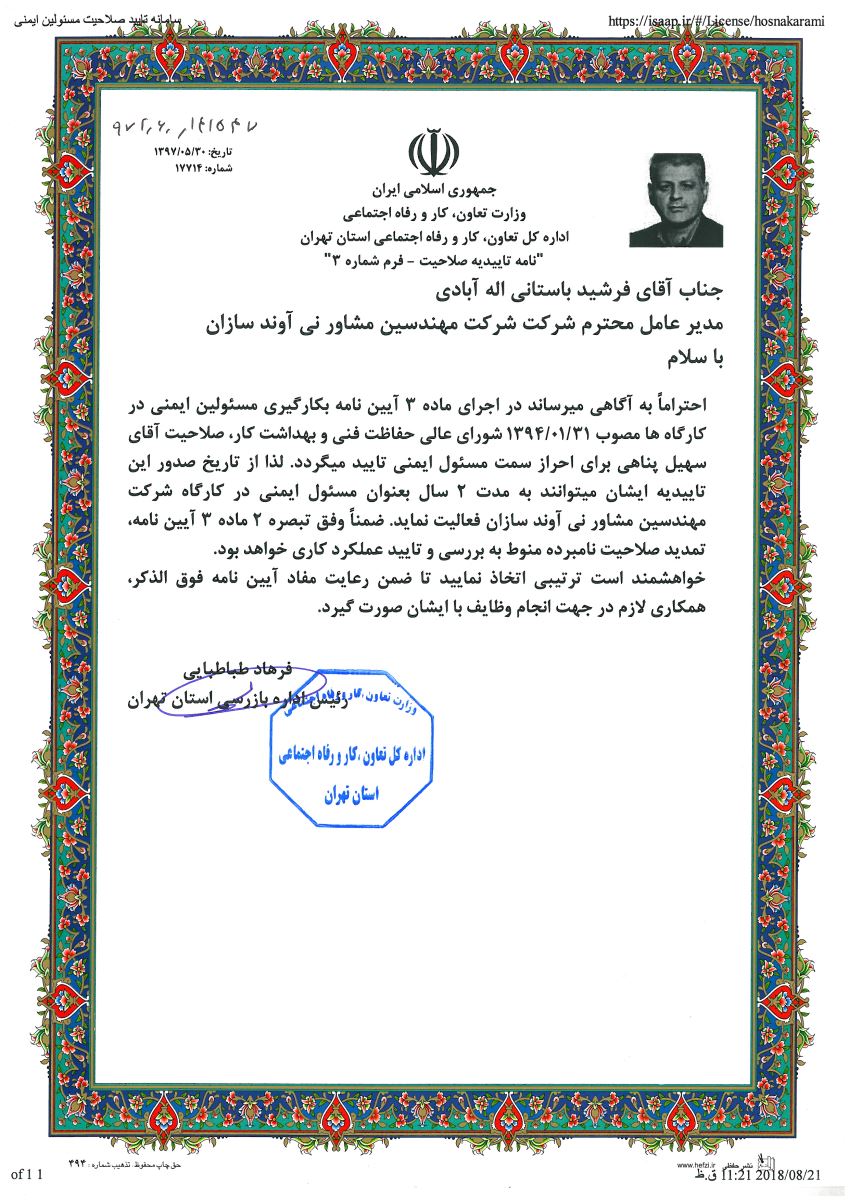 سامانه تایید صلاحیت مسئولین ایمنی
https://isaap.ir/#/License/hosnakarami
تاریخ: ۱۳۹۷/۰۵/۳۰
شماره: ۱۷۷۱۴
جمهوری اسلامی ایران
وزارت تعاون، کار و رفاه اجتماعی
اداره کل تعاون، کار و رفاه اجتماعی استان تهران
"نامه تاییدیه صلاحیت - فرم شماره ۳"
جناب آقای فرشید باستانی اله آبادی
مدیر عامل محترم شرکت شرکت مهندسین مشاور نی آوند سازان
با سلام
احتراماً به آگاهی میرساند در اجرای ماده ۳ آیین نامه بکارگیری مسئولین ایمنی در
کارگاه ها مصوب ۱۳۹۴/۰۱/۳۱ شورای عالی حفاظت فنی و بهداشت کار، صلاحیت آقای
سهیل پناهی برای احراز سمت مسئول ایمنی تایید میگردد. لذا از تاریخ صدور این
تاییدیه ایشان میتوانند به مدت ۲ سال بعنوان مسئول ایمنی در کارگاه شرکت
مهندسین مشاور نی آوند سازان فعالیت نماید. ضمناً وفق تبصره ۲ ماده ۳ آیین نامه،
تمدید صلاحیت نامبرده منوط به بررسی و تایید عملکرد کاری خواهد بود.
خواهشمند است ترتیبی اتخاذ نمایید تا ضمن رعایت مفاد آیین نامه فوق الذکر،
همکاری لازم در جهت انجام وظایف با ایشان صورت گیرد.
فرهاد طباطبایی
رئیس اداره بازرسی استان تهران
وزارت تعاون ،کار و رفاه اجتماعی
اداره کل تعاون ،کار و رفاه اجتماعی
استان تهران
حق چاپ محفوظ. تذهیب شماره : ۴۹۴
نشر حفظی www.hefzi.ir
1 of 1
2018/08/21 11:21 ق.ظ